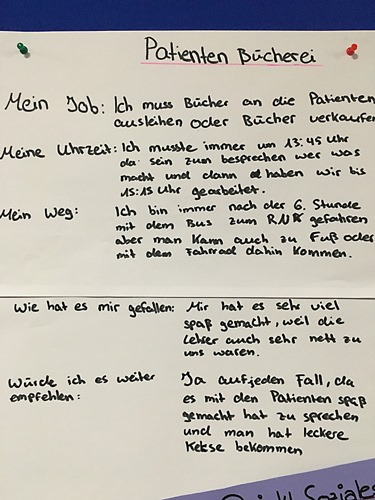 Patienten Bücherei
Mein Job: Ich muss Bücher an die Patienten
ausleihen oder Bücher verkaufen
Meine Uhrzeit: Ich musste immer um 13:45 Uhr
da sein zum besprechen wer was
macht und dann haben wir bis
15:15 Uhr gearbeitet.
Mein Weg: Ich bin immer nach der 6. Stunde
mit dem Bus zum RNK gefahren
aber man kann auch zu Fuß oder
mit dem Fahrrad dahin kommen.
Wie hat es mir gefallen: Mir hat es sehr viel
spaß gemacht, weil die
Lehrer auch sehr nett zu
uns waren.
Würde ich es weiter empfehlen: Ja auf jeden Fall, da
es mit den Patienten spaß
gemacht hat zu sprechen
und man hat leckere
Kekse bekommen
Soziales